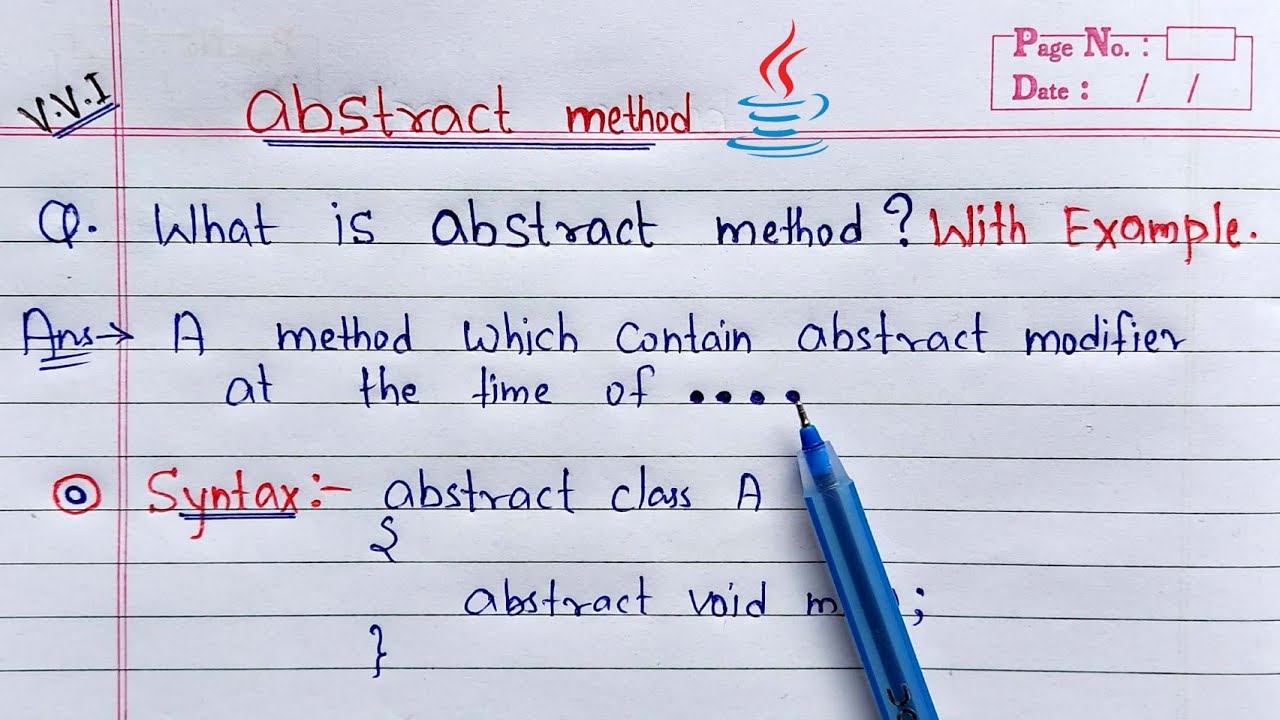 Page No. :
Date : / /
V.V.I
abstract method
Q. What is abstract method? With Example.
Ans→ A method which contain abstract modifier
at the time of ••••
Syntax:- abstract class A
{
abstract void
}